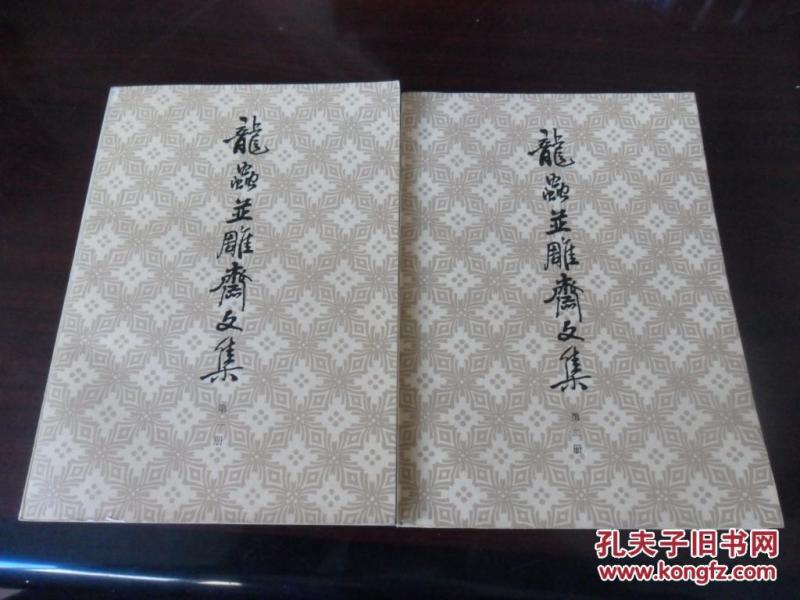 龍蟲並雕齋文集
第一册
龍蟲並雕齋文集
第 册
孔夫子旧书网
www.kongfz.com